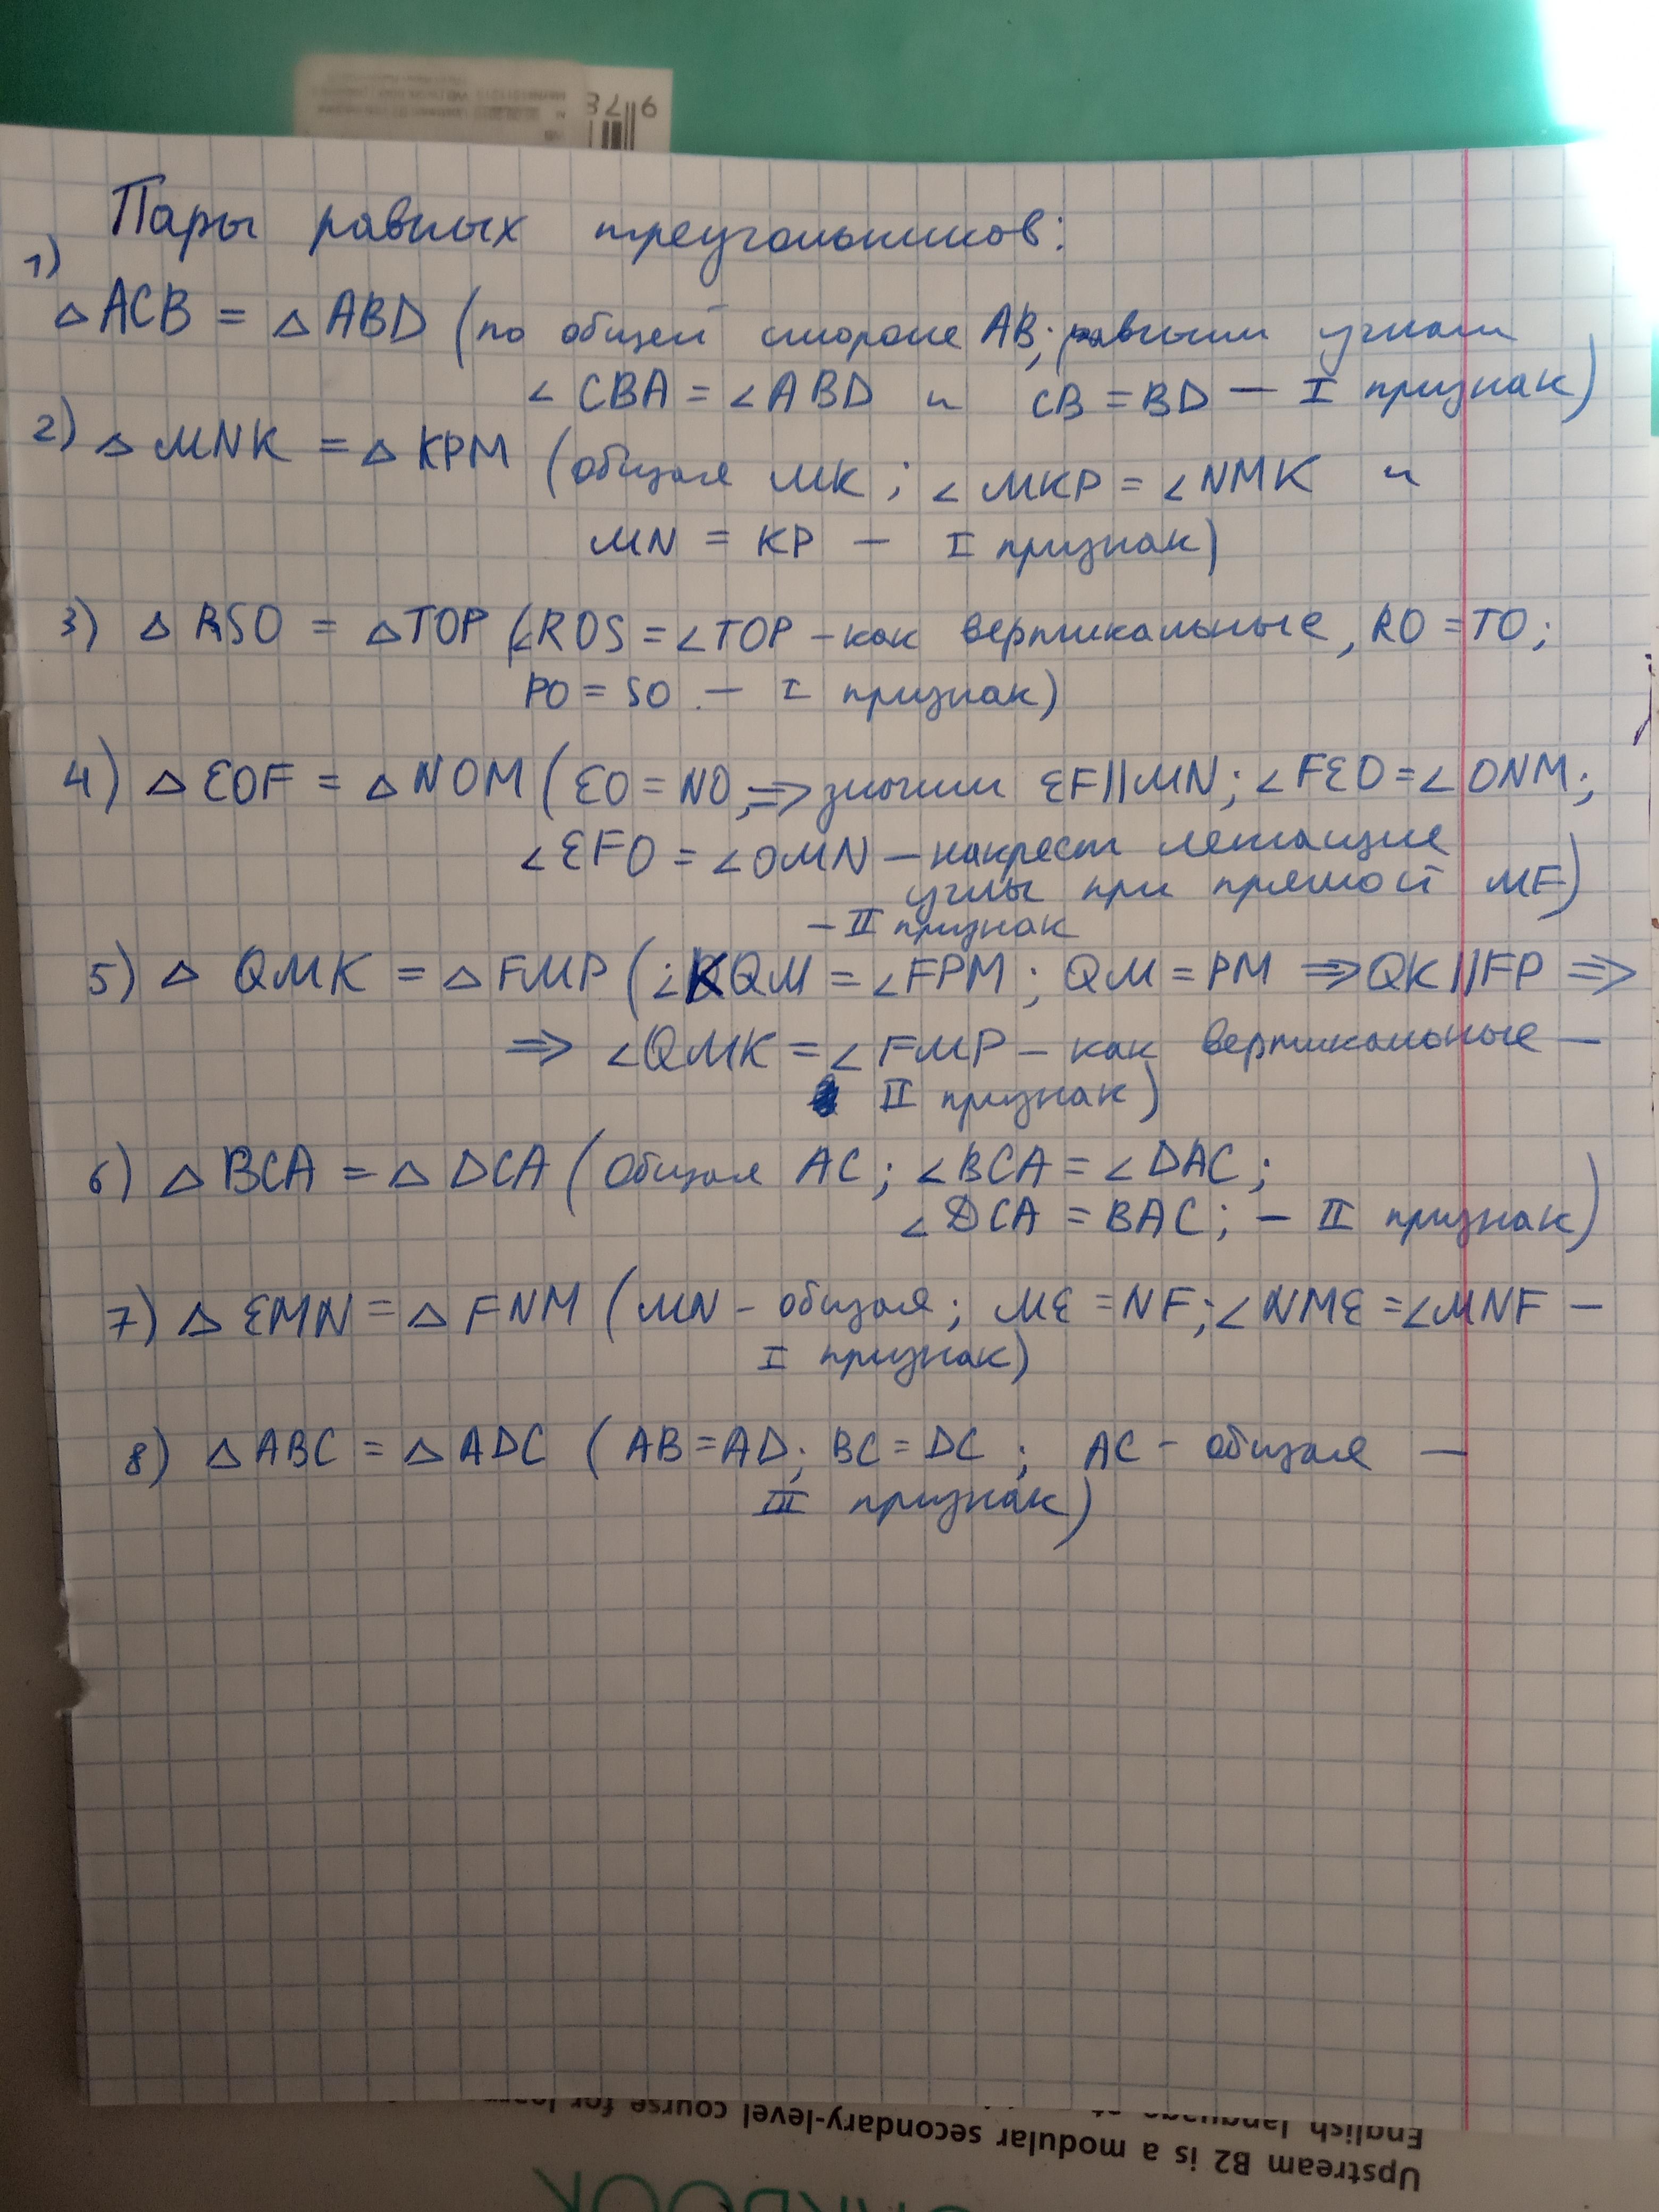 9 78
Пары равных треугольников:
1)
△ ACB = △ ABD (по общей стороне AB; равным углам
∠ CBA = ∠ ABD и CB = BD — I признак)
2) △ MNK = △ KPM (общая MK; ∠ MKP = ∠ NMK и
MN = KP — I признак)
3) △ RSO = △ TOP (∠ROS = ∠TOP – как вертикальные, RO = TO;
PO = SO — I признак)
4) △ EOF = △ NOM (EO = NO, ⇒ значит EF||MN; ∠ FEO = ∠ ONM;
∠ EFO = ∠ OMN — накрест лежащие
углы при прямой MF)
– II признак
5) △ QMK = △ FMP (∠KQM = ∠FPM; QM = PM ⇒ QK||FP ⇒
⇒ ∠QMK = ∠ FMP – как вертикальные —
II признак)
6) △ BCA = △ DCA (Общая AC; ∠BCA = ∠ DAC;
∠ DCA = BAC; — II признак)
7) △ EMN = △ FNM (MN – общая; ME = NF; ∠ NME = ∠MNF —
I признак)
8) △ ABC = △ ADC (AB = AD; BC = DC; AC – общая —
III признак)
English language
Upstream B2 is a modular secondary-level course for